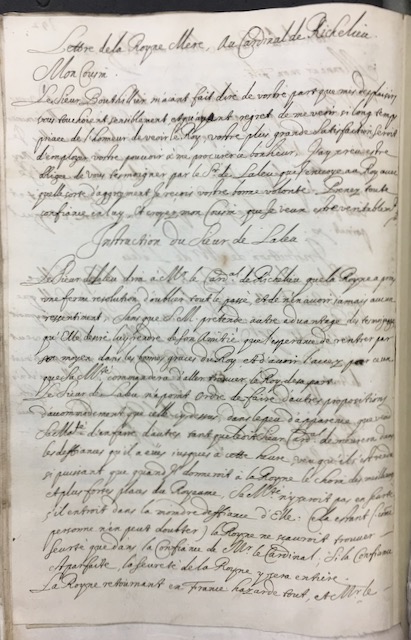 Lettre de la Royne Mere, Au Cardinal de Richelieu.
Mon Cousin.
Le Sieur Bonthillier m'aiant fait dire de vostre part que mes desplaisirs
vous touchoient sensiblement et qu'aiant regret de me veoir si long temps
privée de l'honneur de veoir le Roy, vostre plus grande satisfaction seroit
d'employer vostre pouvoir a me procurer ce bonheur. J'ay creu estre
obligée de vous tesmoigner par le Sr. de Laleu que j'envoye au Roy avec
quelle sorte d'aggrement Je reçois vostre bonne volonté. Prenez toute
confiance en luy. Et croyez mon Cousin, que Je veux estre veritablement
Instruction du Sieur de Laleu
Le Sieur de Laleu dira à Mr. le Carnal. de Richelieu que la Royne a pris
une ferme resolution d'oublier tout le passé, et de n'en avoir jamais aucun
ressentiment, Sans que S. M. pretende autre advantage du temps passé
qu'Elle desire luy rendre de son Amitié, que l'esperance de rentrer par
son moyen dans les bonnes graces du Roy et d'avoir l'acces par ceux
que sa Mté. commandera d'aller trouver le Roy de sa part.
Le Sieur de Laleu n'a point Ordre de faire d'autres propositions
d'accommodement que celle cy dessus, dans le peu d'apparence que
Sa Maté. d'en faire d'autres tant que led. Sieur Carnal. demeurera dans
les deffiances qu'il a eues jusques à cette heure,
si puissant que quand on donneroit à la Royne le choix des meilleures
et plus fortes places du Royaume, Sa Mté. n'y seroit pas en seureté
s'il entroit dans la moindre deffiance d'Elle. Cela estant (comme
personne n'en peut doubter) la Royne ne sçauroit trouver
seureté que dans la Confiance de Mr. le Cardinal. Si la Confiance
est parfaite, la seureté de la Royne y sera entiere.
La Royne retournant en France hazarde tout, et Mr. le